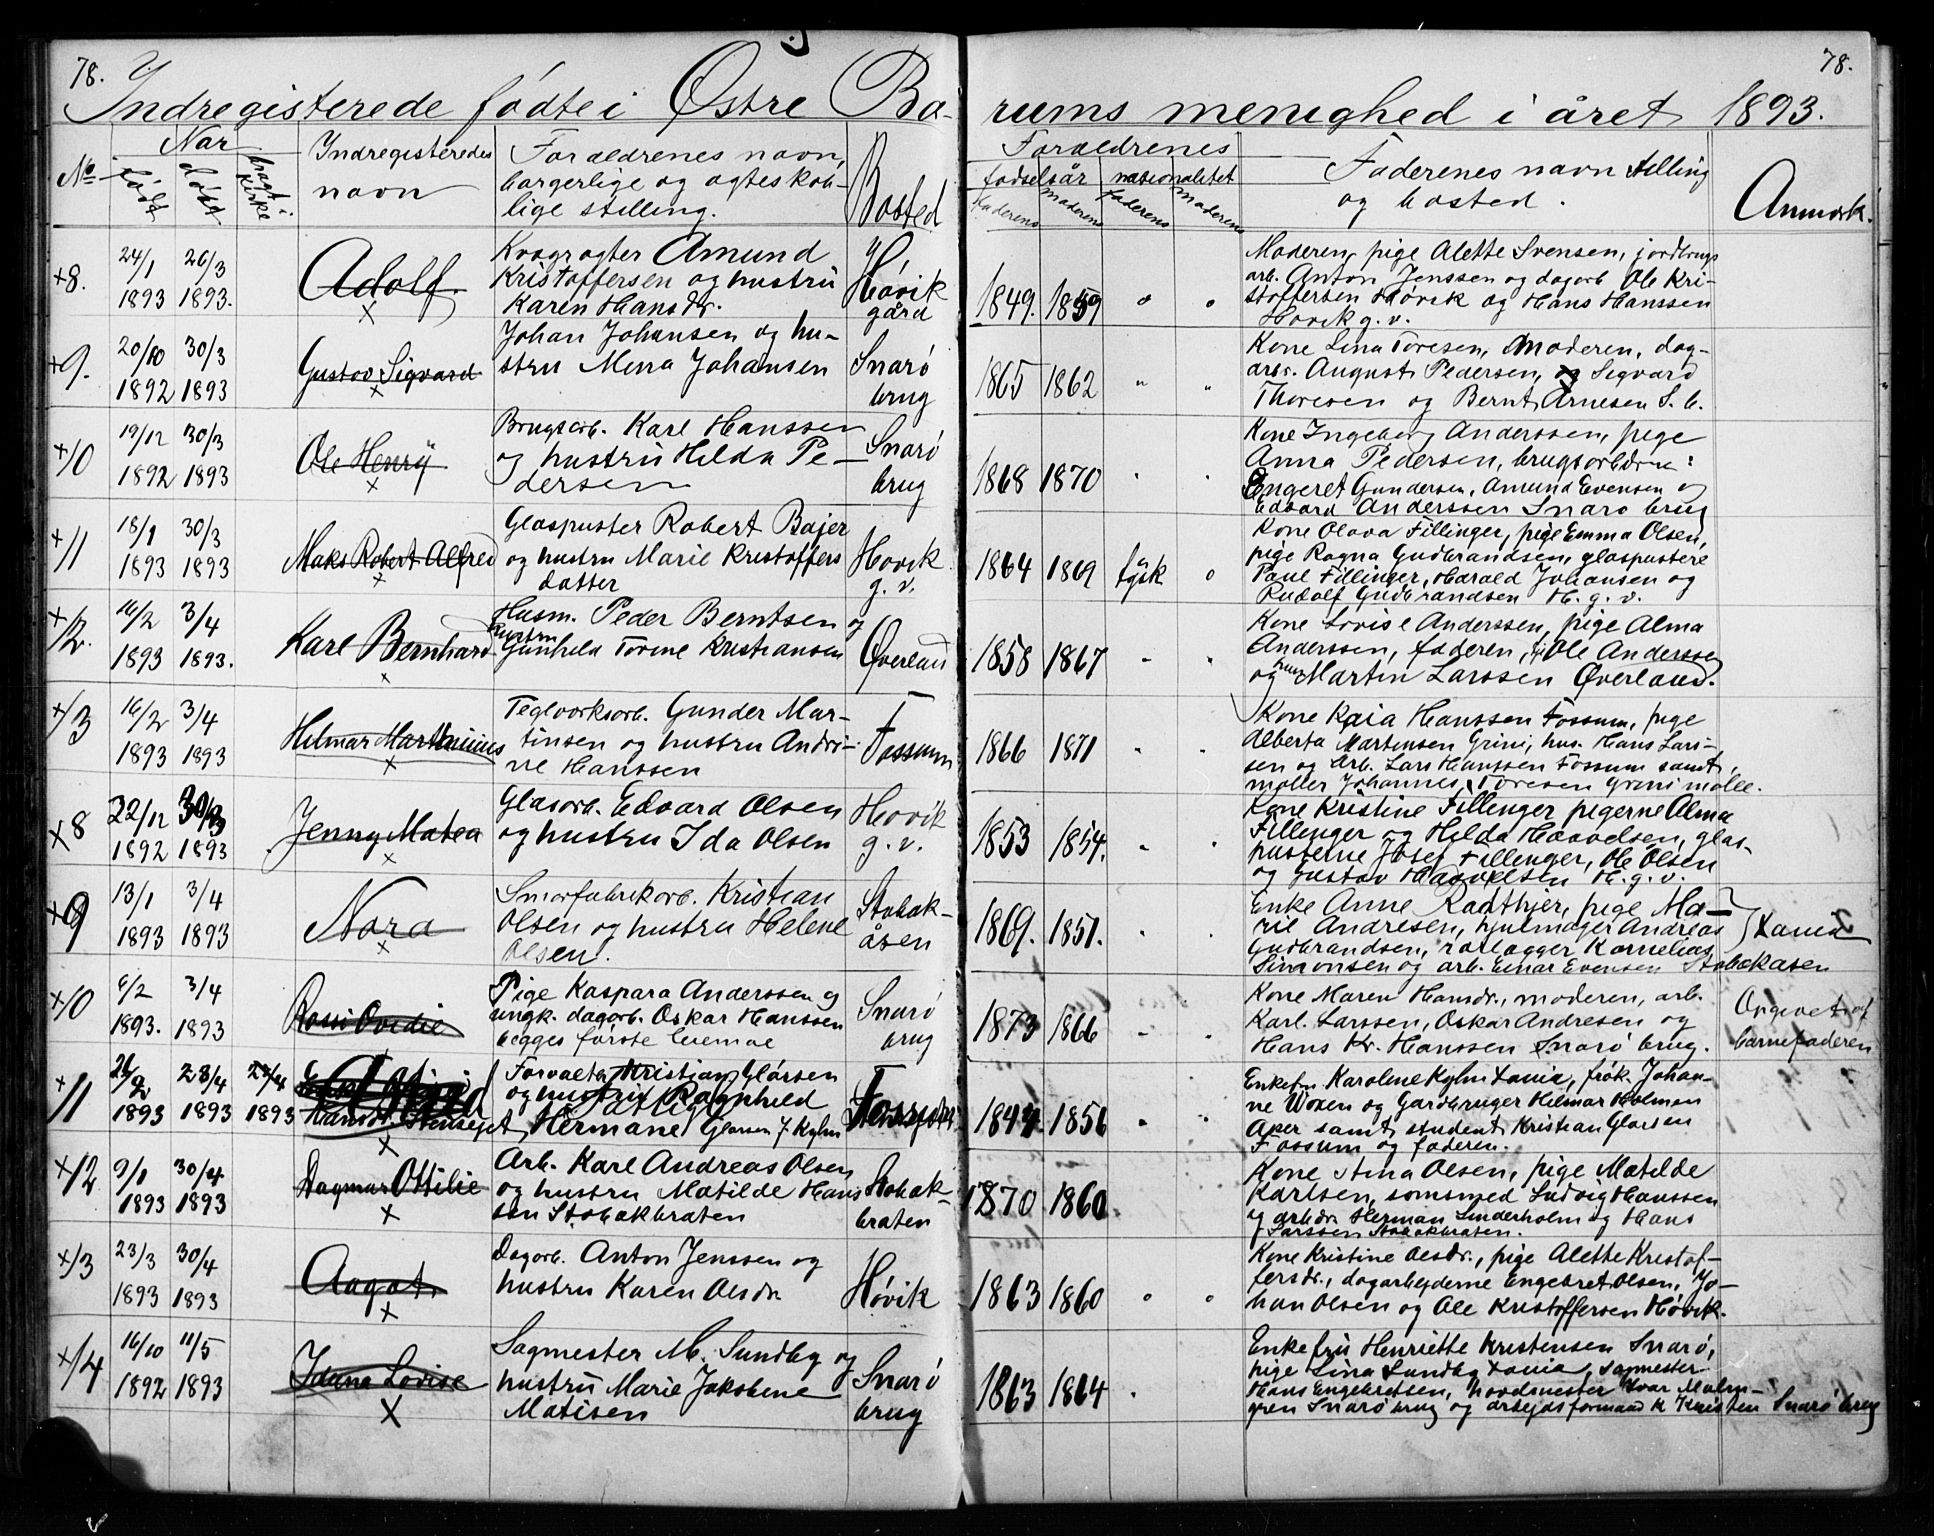 78.
78.
Indregisterede fødte i Østre Bærums menighed i året 1893.
No
Når
født
døbt
bragt i kirke
Indregisteredes navn
Forældrenes navn, borgerlige og ægteskabelige stilling.
Bosted
Forældrenes
fødselsår
faderens
moderens
nasionalitet
faderens
moderens
Faderenes navn stilling og bosted.
Anmærk.
+8.
24/1 1893
26/3 1893.
Adolf
Amund
Kristoffersen og hustru
Karen Hansdr.
Høvik
gård
1849.
1859
"
"
Moderen, pige Alette Svensen, jordbrugs
arb. Anton Jenssen og dagarb Ole Kri-
stoffersen Høvik og Hans Hanssen
Høvik g. v.
+9.
20/10 1892
30/3 1893
Gustav Sigvard
Johan Johansen og hu-
stru Mina Johansen
Snarø
brug
1865
1862
"
"
Kone Lina Toresen, Moderen, dag-
arb. August Pedersen, Sigvard
Thoresen og Bernt Arnesen S. b.
+10
19/12 1892
30/3 1893
Ole Henry
Brugsarb. Karl Hanssen
og hustru Hilda Pe-
dersen
Snarø
brug
1868
1870
"
"
Kone Ingeborg Anderssen, pige
Anna Pedersen, brugsarbdrne:
Engeret Gundersen, Amund Evensen og
Edvard Anderssen Snarø brug
+11
18/1 1893
30/3 1893
Maks Robert Alfred
Glaspuster Robert Bajer
og hustru Marie Kristoffers
datter
Høvik
g. v.
1864
1869
tysk
"
Kone Olava Fillinger, pige Emma Olsen,
pige Ragna Gudbrandsen, glaspustere
Paul Fillinger, Harald Johansen og
Rudolf Gudbrandsen H. g. v.
+12.
16/2 1893
3/4 1893.
Karl Bernhard
Husm. Peder Berntsen og
hustru
Gunhild Torine Kristiansen
Øverland
1858
1867
"
"
Kone Lovise Anderssen, pige Alma
Anderssen, faderen, Ole Anderssen
og Martin Larssen Øverland.
+13
16/2 1893
3/4 1893
Hilmar Marthinius
Teglverksarb. Gunder Mar-
tinsen og hustru Andri-
ne Hanssen
Fossum
1866
1871
"
"
Kone Kaia Hanssen Fossum, pige
Alberta Martensen Grini, hus. Hans Lars-
sen og Arb. Lars Hanssen Fossum samt
møller Johannes Toresen Grini mølle.
+8
22/12 1892
30/3 1893
Jenny Matea
Glasarb. Edvard Olsen
og hustru Ida Olsen
Høvik
g. v.
1853
1854.
"
"
Kone Kristine Fillinger pigerne Alma
Fillinger og Hilda Haavelsen, glas-
pusterne Josef Fillinger, Ole Olsen
og Gustav Haavelsen H. g. v.
+9
13/1 1893
3/4 1893
Nora
Smørfabrikarb. Kristian
Olsen og hustru Helene
Olsen.
Stabæk-
åsen
1869.
1851.
"
"
Enke Anne, pige Ma-
rie Andresen, hjulmager Andreas
Gudbrandsen, rørlægger Kornelius
Simonsen og arb. Einar Evensen Stabækåsen
+10
6/2 1893.
3/4 1893
Rossi Ovedie
Pige Kaspara Anderssen og
ungk. dagarb. Oskar Hanssen
begges første leiemål
Snarø
brug
1873
1866
"
"
Kone Maren Hansdr., moderen, arb.
Karl. Larssen, Oskar Andresen og
Hans Kr. Hanssen Snarø brug.
Opgivet af
barnefaderen
+11
1893
28/4 1893
1893
Forvalter Kristian Glørsen
og hustru Ragnhild
Hermane Glørsen f. Kyhn
1856
"
"
Enkefru Karoline Kyhn, frøk. Johan-
ne Woxen og Gardbruger Hilmar Holmen
Aker samt student Kristian Glørsen
Fossum og faderen.
+12
9/1 1893
30/4 1893
Dagmar Ottilie
Arb. Karl Andreas Olsen
og hustru Matilde Hans
sen Stabækbråten
Stabæk-
bråten
1870
1860
"
"
Kone Stina Olsen, pige Matilde
Karlsen, Ludvig Hanssen
og arbdr. Herman Linderholm og Hans
Larssen Stabækbråten.
+13
23/3 1893
30/4 1893
Aagot
Dagarb. Anton Jenssen og
hustru Karen Olsdr.
Høvik
1863
1860
"
"
Kone Kristine Olsdr., pige Alette Kristof-
fersdr., dagarbejderne Engebret Olsen, Jo-
han Olsen og Ole Kristoffersen Høvik.
+14
16/10 1892
11/5 1893
Idana Lovise
Sagmester M. Sundby og
hustru Marie Jakobine
Matisen
Snarø
brug
1863
1864
"
Enkefru Henriette Kristensen Snarø,
pige Lina Sundby, sagmester
Hans Engebretsen, hovdsmester Ivar Malm-
gren Snarø brug og arbejdsformand K Kristen Snarø brug